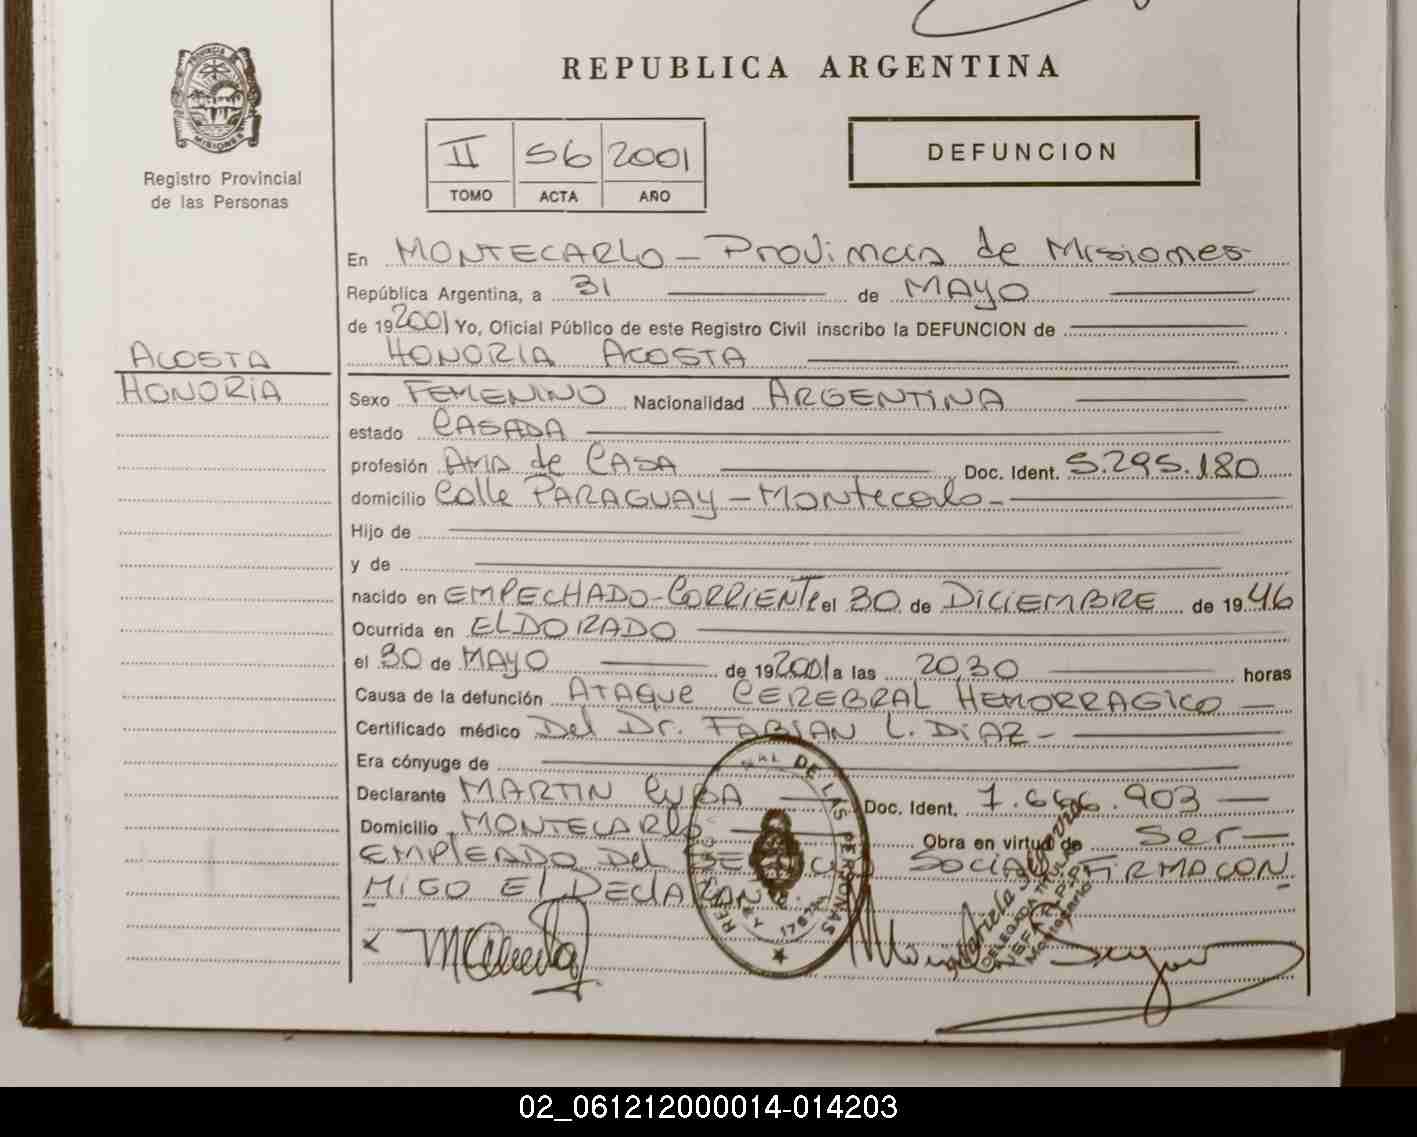 REPUBLICA ARGENTINA
PROVINCIA DE
MISIONES
Registro Provincial
de las Personas
II 56 2001
TOMO ACTA AÑO
DEFUNCION
En MONTECARLO - Provincia de Misiones
República Argentina, a 31 de MAYO
de 192001 Yo, Oficial Público de este Registro Civil inscribo la DEFUNCION de
HONORIA ACOSTA
ACOSTA
HONORIA
Sexo FEMENINO Nacionalidad ARGENTINA
estado CASADA
profesión AMA de CASA Doc. Ident. 5.295.180
domicilio Calle PARAGUAY - MONtecarlo -
Hijo de
y de
nacido en EMPECHADO - CORRIENTE el 30 de DICIEMBRE de 1946
Ocurrida en ELDORADO
el 30 de MAYO de 192001 a las 20,30 horas
Causa de la defunción ATAQUE CEREBRAL HEMORRAGICO -
Certificado médico Del Dr. FABIAN L. DIAZ -
Era cónyuge de
Declarante MARTIN Doc. Ident. 7.646.903 -
Domicilio MONTECARLO Obra en virtud de Ser -
EMPLEADO Del SOCIAL FIRMACON
MIGO El DeclaRAN
DE LAS PERSONAS
DELEGADA TITULAR
02_061212000014-014203